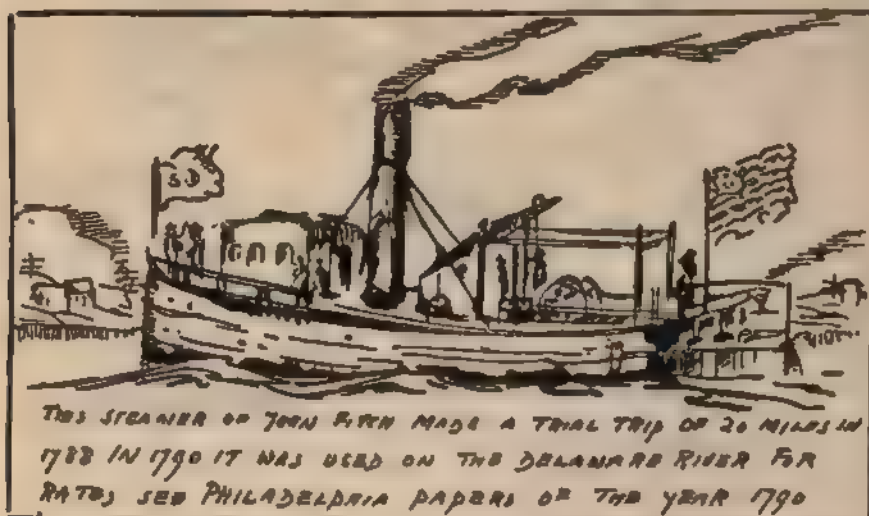 THIS STEAMER OF JOHN FITCH MADE A TRIAL TRIP OF 20 MILES IN
1788 IN 1790 IT WAS USED ON THE DELAWARE RIVER FOR
RATES SEE PHILADELPHIA PAPERS OF THE YEAR 1790